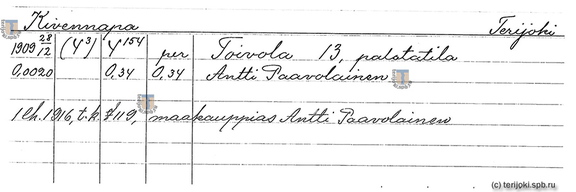 Kivennapa Terijoki
1909 28/12 (4³) 4¹⁵⁴ per Toivola 13, palstatila
0,0020 0,34 0,34 Antti Paavolainen
1 Ch. 1916, t.k. § 119, maakauppias Antti Paavolainen
(c) terijoki.spb.ru